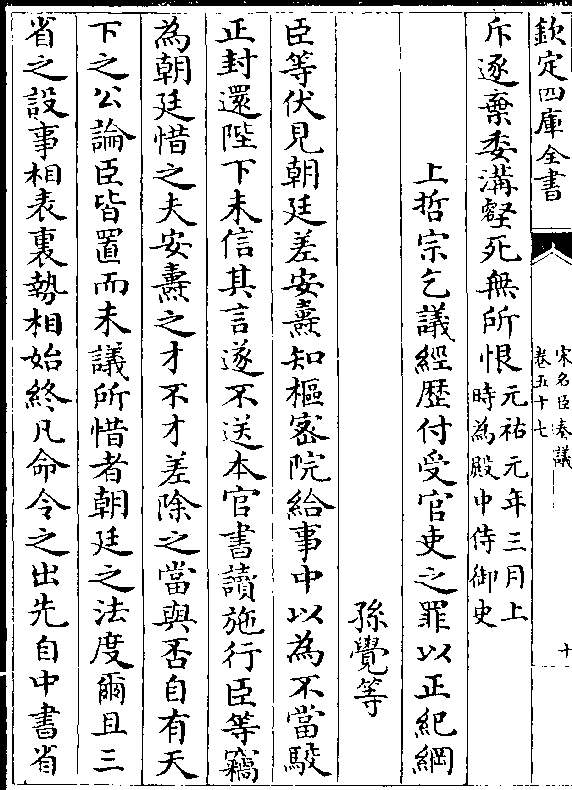 欽定四庫全書
宋名臣奏議
卷五十七
十
斥逐棄委溝壑死無所恨元祐元年三月上
時為殿中侍御史
上哲宗乞議經歷付受官吏之罪以正紀綱
孫覺等
臣等伏見朝廷差安燾知樞密院給事中以為不當駮
正封還陛下未信其言遂不送本官書讀施行臣等竊
為朝廷惜之夫安燾之才不才差除之當與否自有天
下之公論臣皆置而未議所惜者朝廷之法度爾且三
省之設事相表裏勢相始終凡命令之出先自中書省